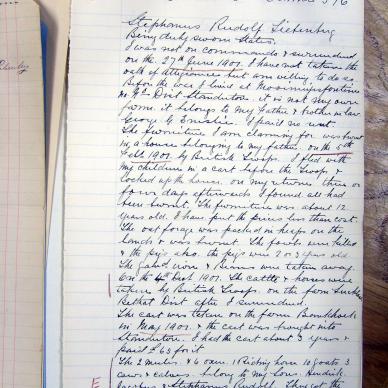 Stephanus Rudolf Liebenberg
Being duly sworn states.
I was not on commando & surrendered
on the 27th June 1901. I have not taken the
oath of Allegiance but am willing to do so.
Before the war I lived at
Dist Standerton. it is not my own
farm. it belongs to my father & brother in law
George G. I paid no rent.
The furniture I am claiming for was burnt
in a house belonging to my father. on the 5th
Feb 1901. by British Troops. I fled with
my children in a cart before the Troops &
locked up the house. on my return three or
four days afterwards I found all had
been burnt. The furniture was about 12
years old. I have put the prices less than cost.
The oat forage was packed in heaps on the
lands & was burnt. The fowls were killed
& the pigs also. the pigs were 2 or 3 years old.
The Galvd iron & were taken away.
on the Sept 1901. The cattle & horses were
taken by British Troops. on the farm
Bethal Dist after I surrendered.
The cart was taken on the farm
in May 1901. & the cart was brought into
Standerton. I had the cart about 3 years &
paid £63 for it.
The 2 mules & 6 oxen. 1 Riding horse 10 goats 3
cows & calves belong to my sons. Hendrik
& Stephanus Rudolf.
E